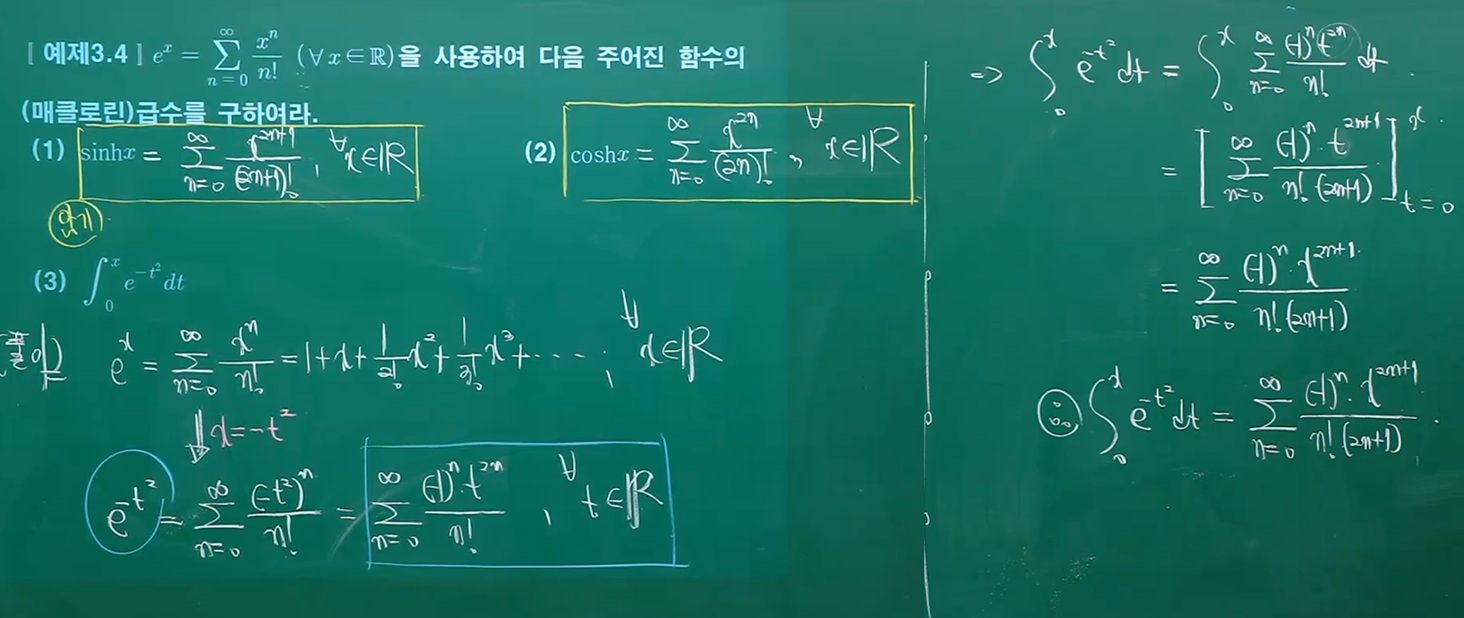 [ 예제3.4 ] e^x = ∑_{n=0}^{∞} x^n/n! (∀x∈ℝ)을 사용하여 다음 주어진 함수의
(매클로린)급수를 구하여라.
(1) sinhx = ∑_{n=0}^{∞} x^{2n+1}/(2n+1)! , ∀x∈ℝ
(2) coshx = ∑_{n=0}^{∞} x^{2n}/(2n)! , ∀x∈ℝ
암기
(3) ∫_0^x e^{-t^2} dt
e^x = ∑_{n=0}^{∞} x^n/n! = 1+x+1/2! x^2+1/3! x^3+ ⋯ , ∀x∈ℝ
⇓ x=-t^2
e^{-t^2} = ∑_{n=0}^{∞} (-t^2)^n/n! = ∑_{n=0}^{∞} (-1)^n·t^{2n}/n! , ∀t∈ℝ
⇒ ∫_0^x e^{-t^2} dt = ∫_0^x ∑_{n=0}^{∞} (-1)^n t^{2n}/n! dt
= [ ∑_{n=0}^{∞} (-1)^n·t^{2n+1}/n!·(2n+1) ]_{t=0}^{x}
= ∑_{n=0}^{∞} (-1)^n·x^{2n+1}/n!(2n+1)
∴ ∫_0^x e^{-t^2} dt = ∑_{n=0}^{∞} (-1)^n·x^{2n+1}/n!(2n+1) .